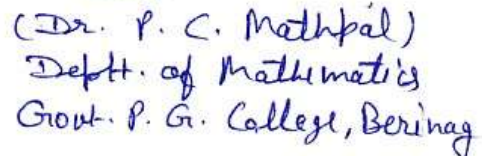 (Dr. P. C. Mathpal)
Deptt. of Mathematics
Govt. P. G. College, Berinag